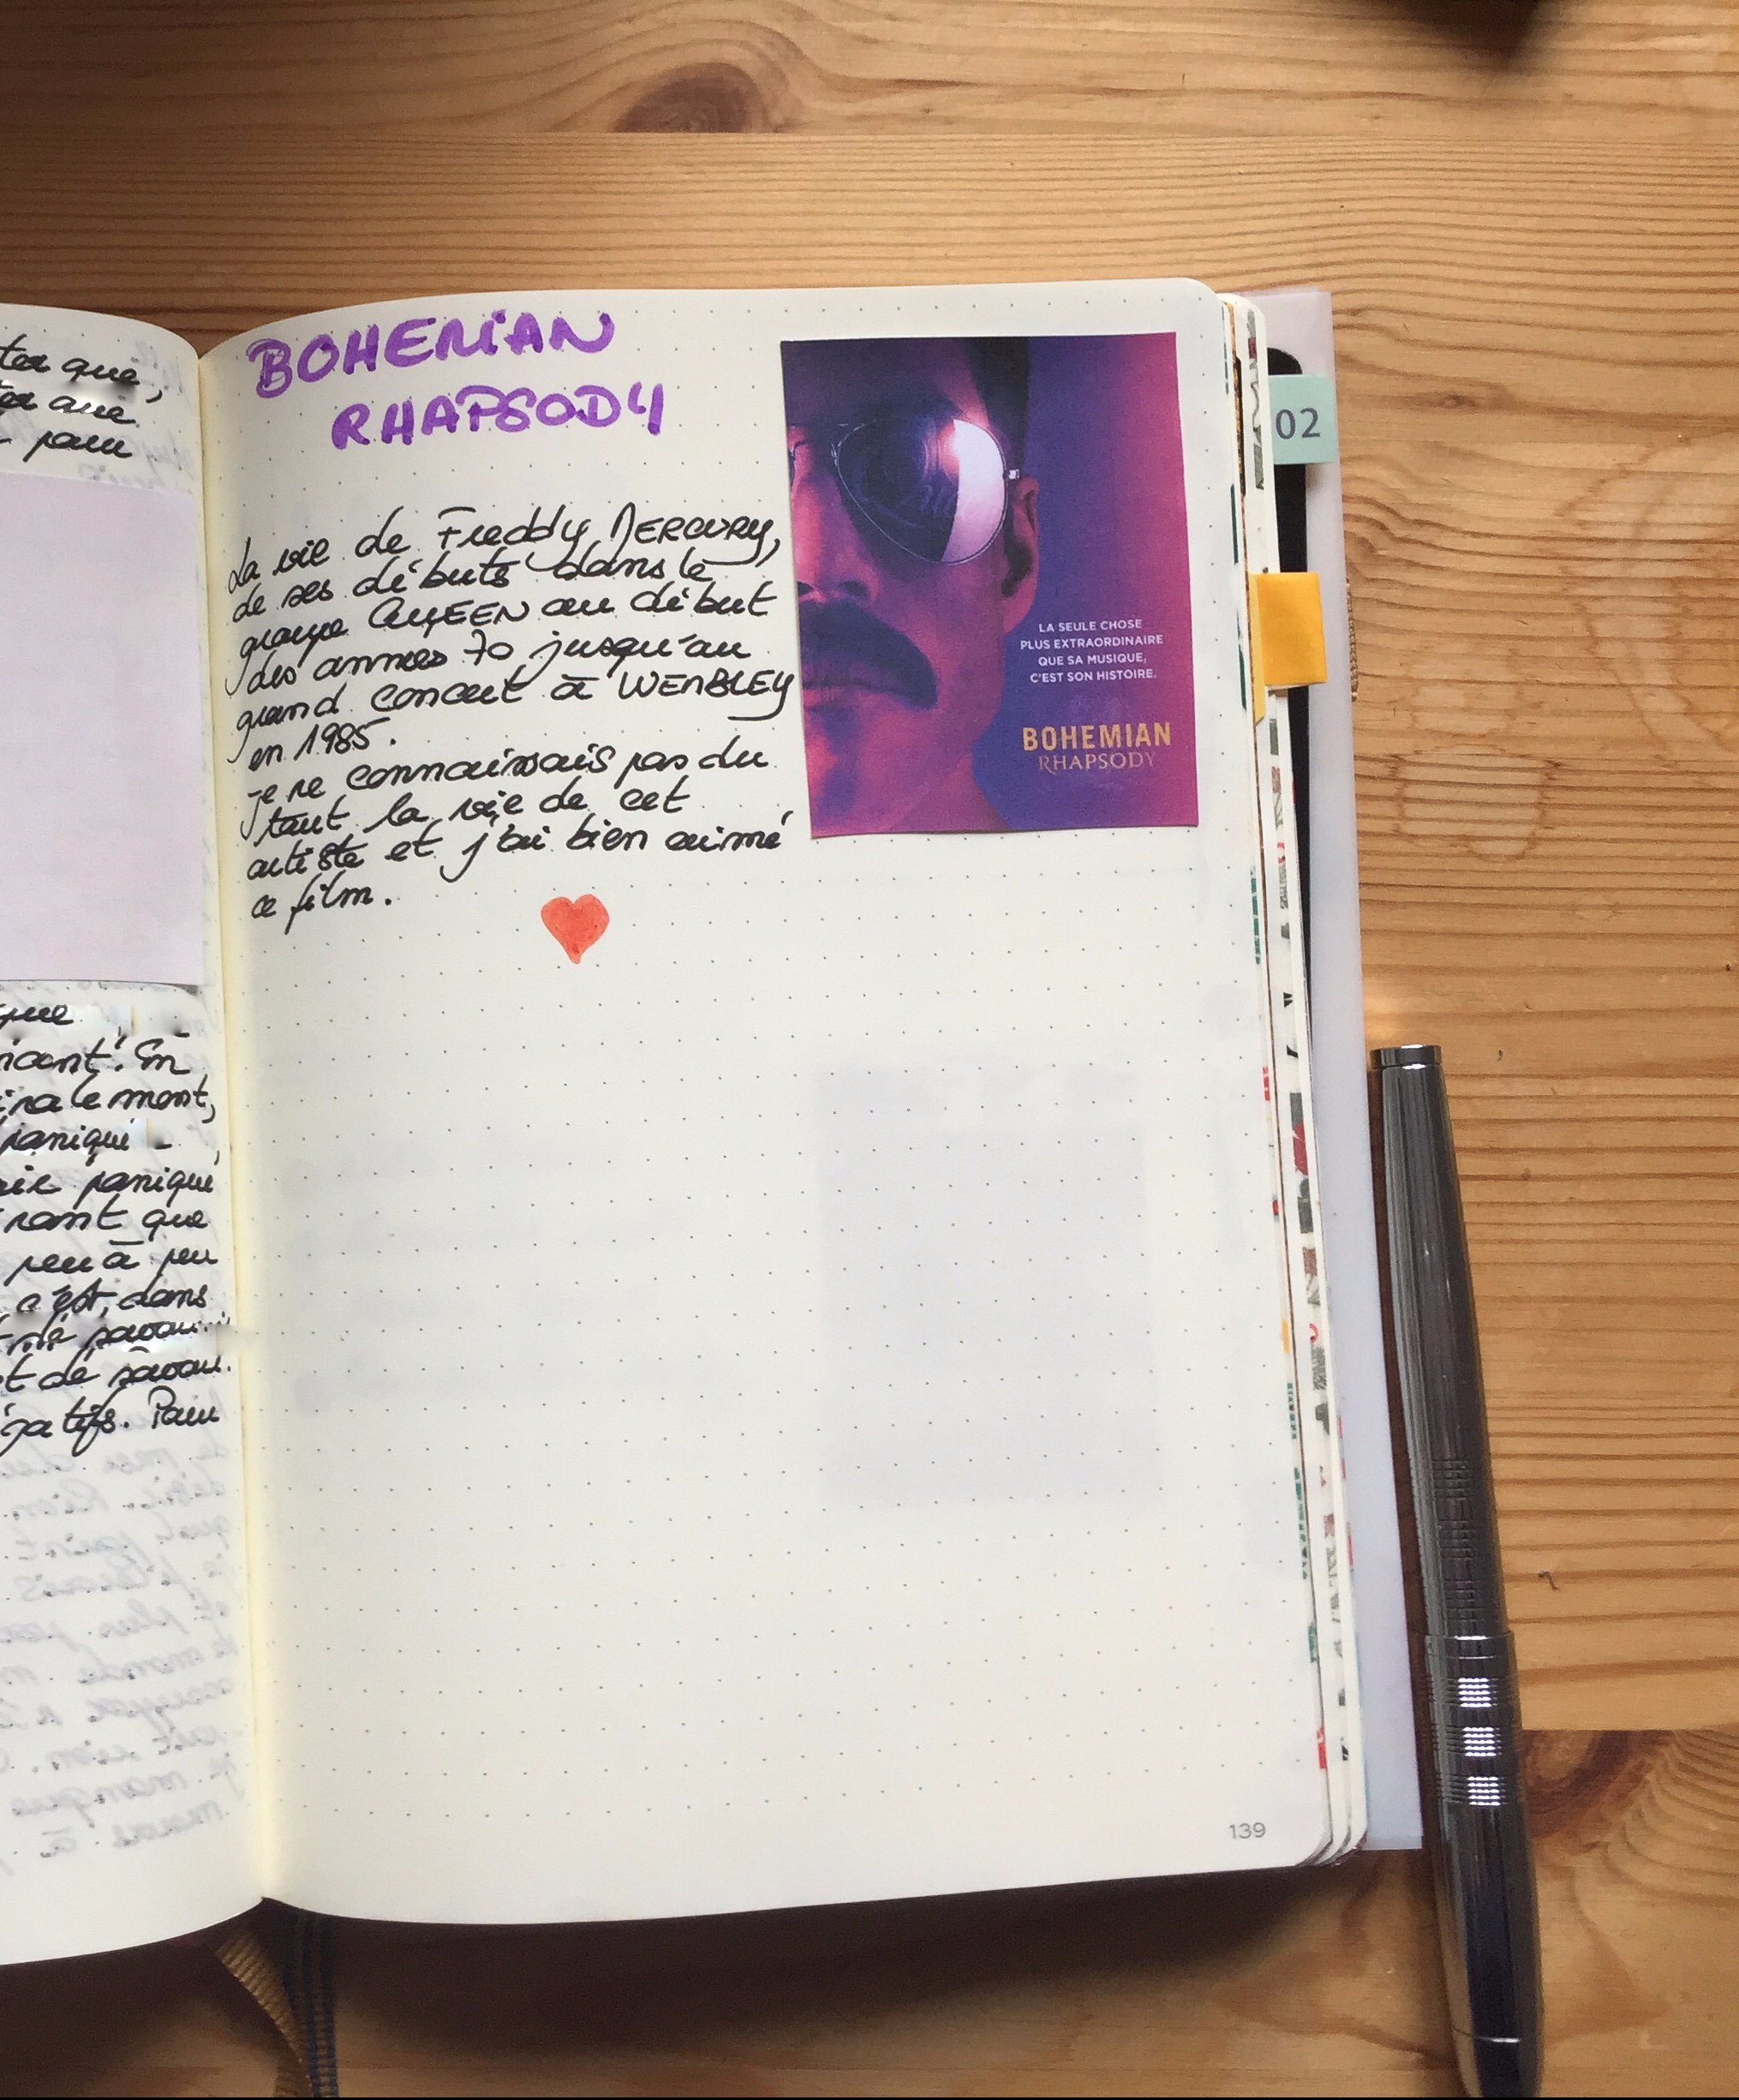 ter que,
ter que
pour
que
icant! En
ralement,
paniqué
paniqué
rant que
peu à peu
c'est, dans
de savoir..
t de savoir.
gatifs. Pour
BOHEMIAN
RHAPSODY
La vie de Freddy MERCURY,
de ses débuts dans le
groupe QUEEN au début
des années 70 jusqu'au
grand concert à WEMBLEY
en 1985.
je ne connaissais pas du
tout la vie de cet
artiste et j'ai bien aimé
ce film.
LA SEULE CHOSE
PLUS EXTRAORDINAIRE
QUE SA MUSIQUE,
C'EST SON HISTOIRE.
BOHEMIAN
RHAPSODY
02
139